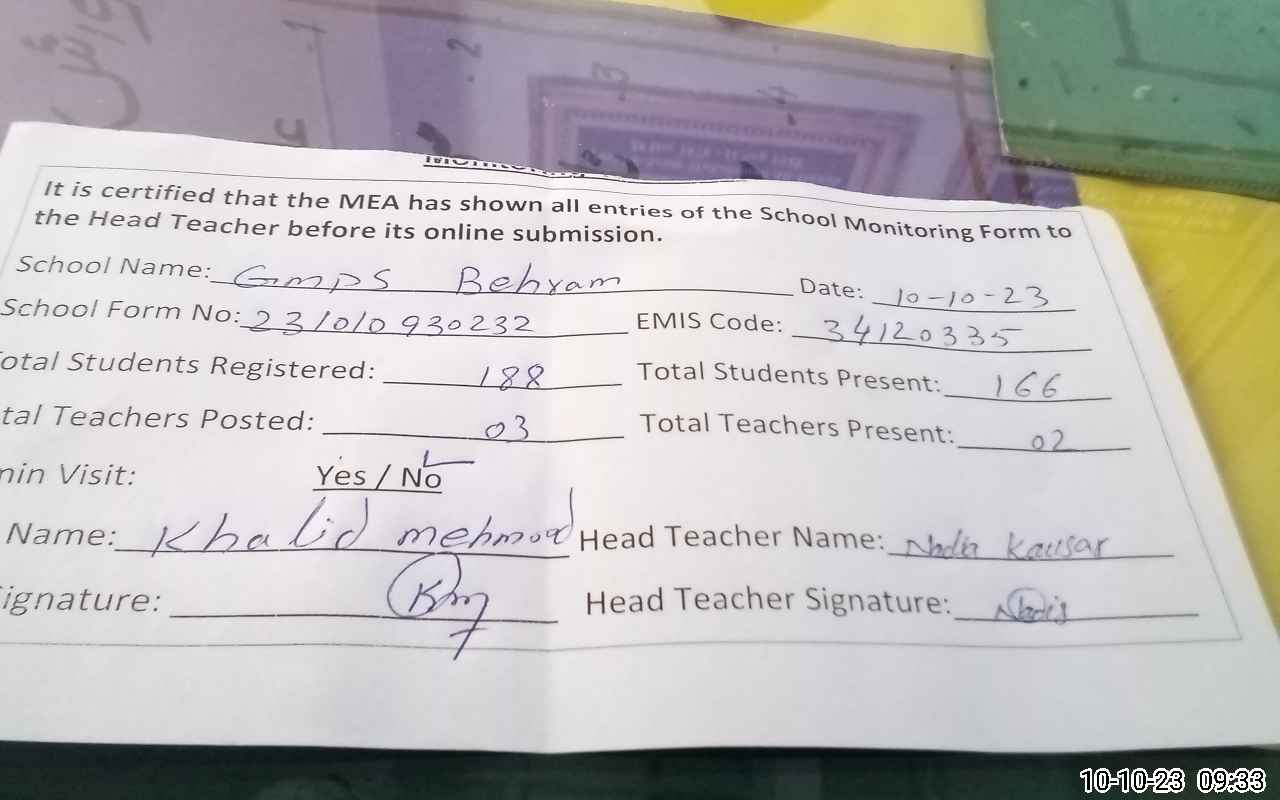 It is certified that the MEA has shown all entries of the School Monitoring Form to
the Head Teacher before its online submission.
School Name: GMPS Behram Date: 10-10-23
School Form No: 231010930232 EMIS Code: 34120335
otal Students Registered: 188 Total Students Present: 166
tal Teachers Posted: 03 Total Teachers Present: 02
min Visit: Yes / No
Name: Khalid mehmood Head Teacher Name: Nadia Kausar
ignature: Km Head Teacher Signature: Nadia
10-10-23 09:33